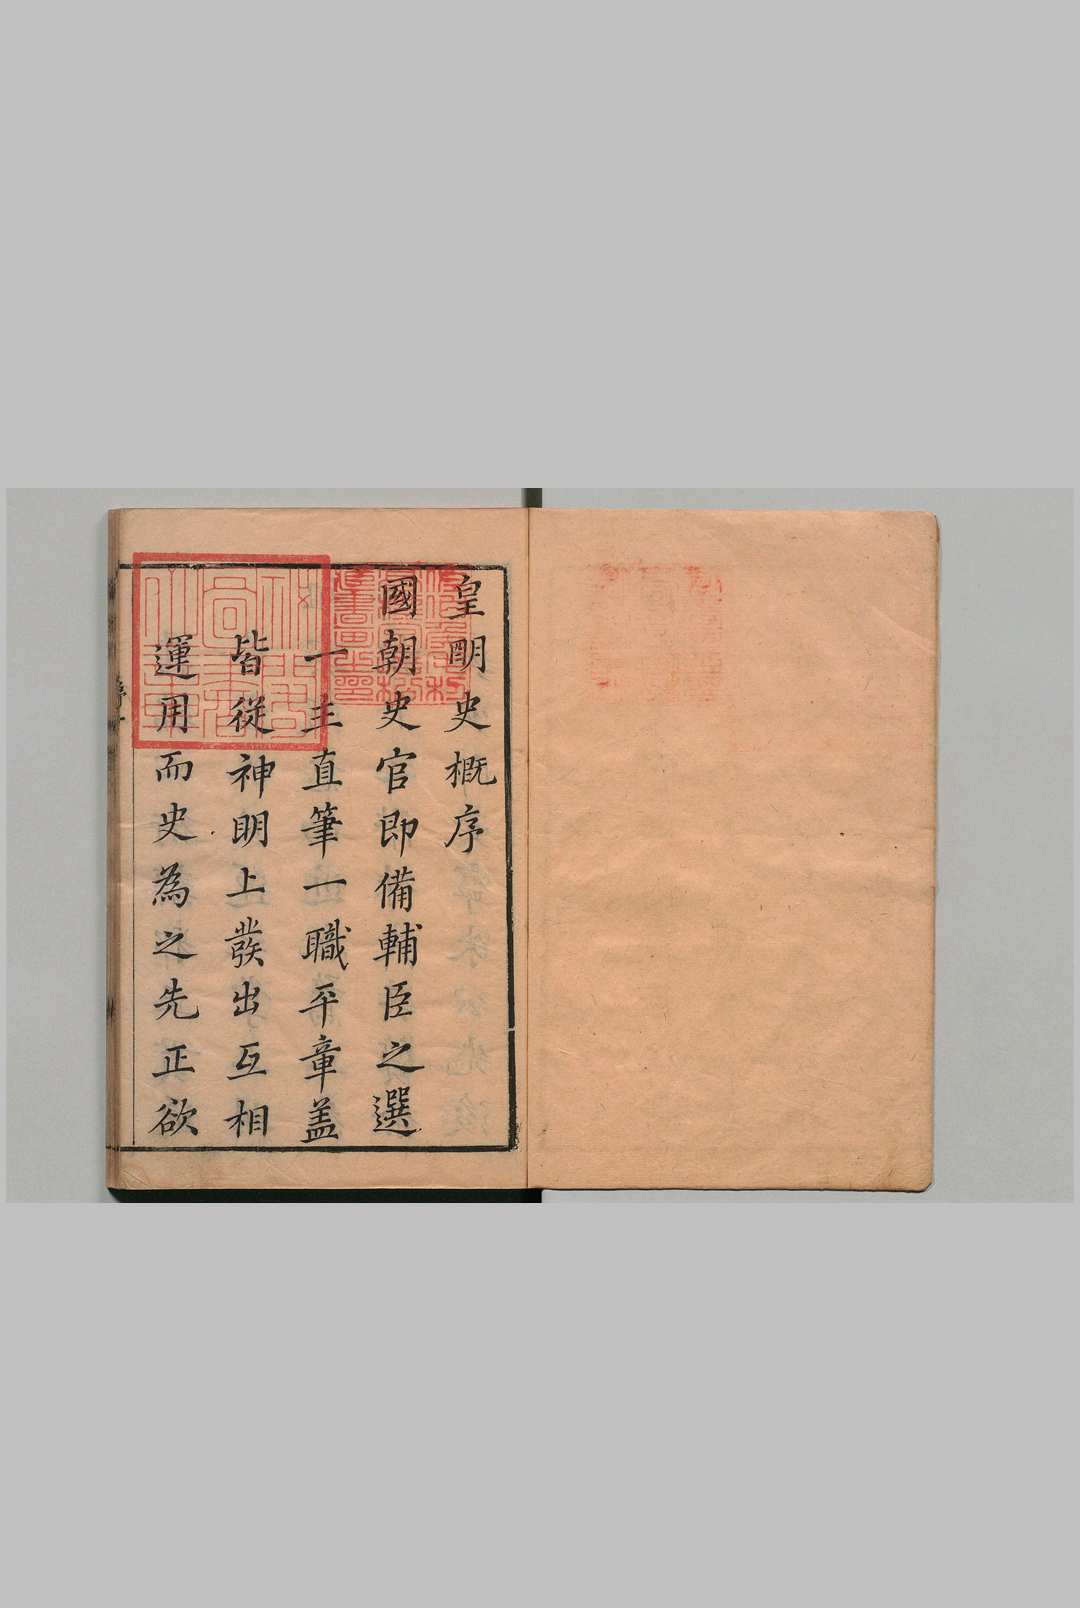 皇明史概序
國朝史官即備輔臣之選
一主直筆一職平章盖
皆從神明上發出互相
運用而史為之先正欲